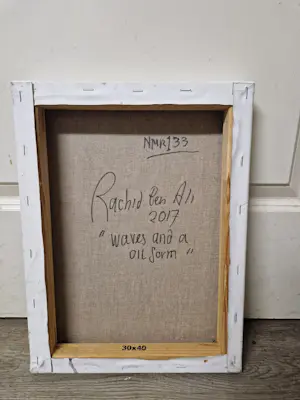 NMR133
Rachid Ben Ali
2017
" waves and a
oil form "
30x40